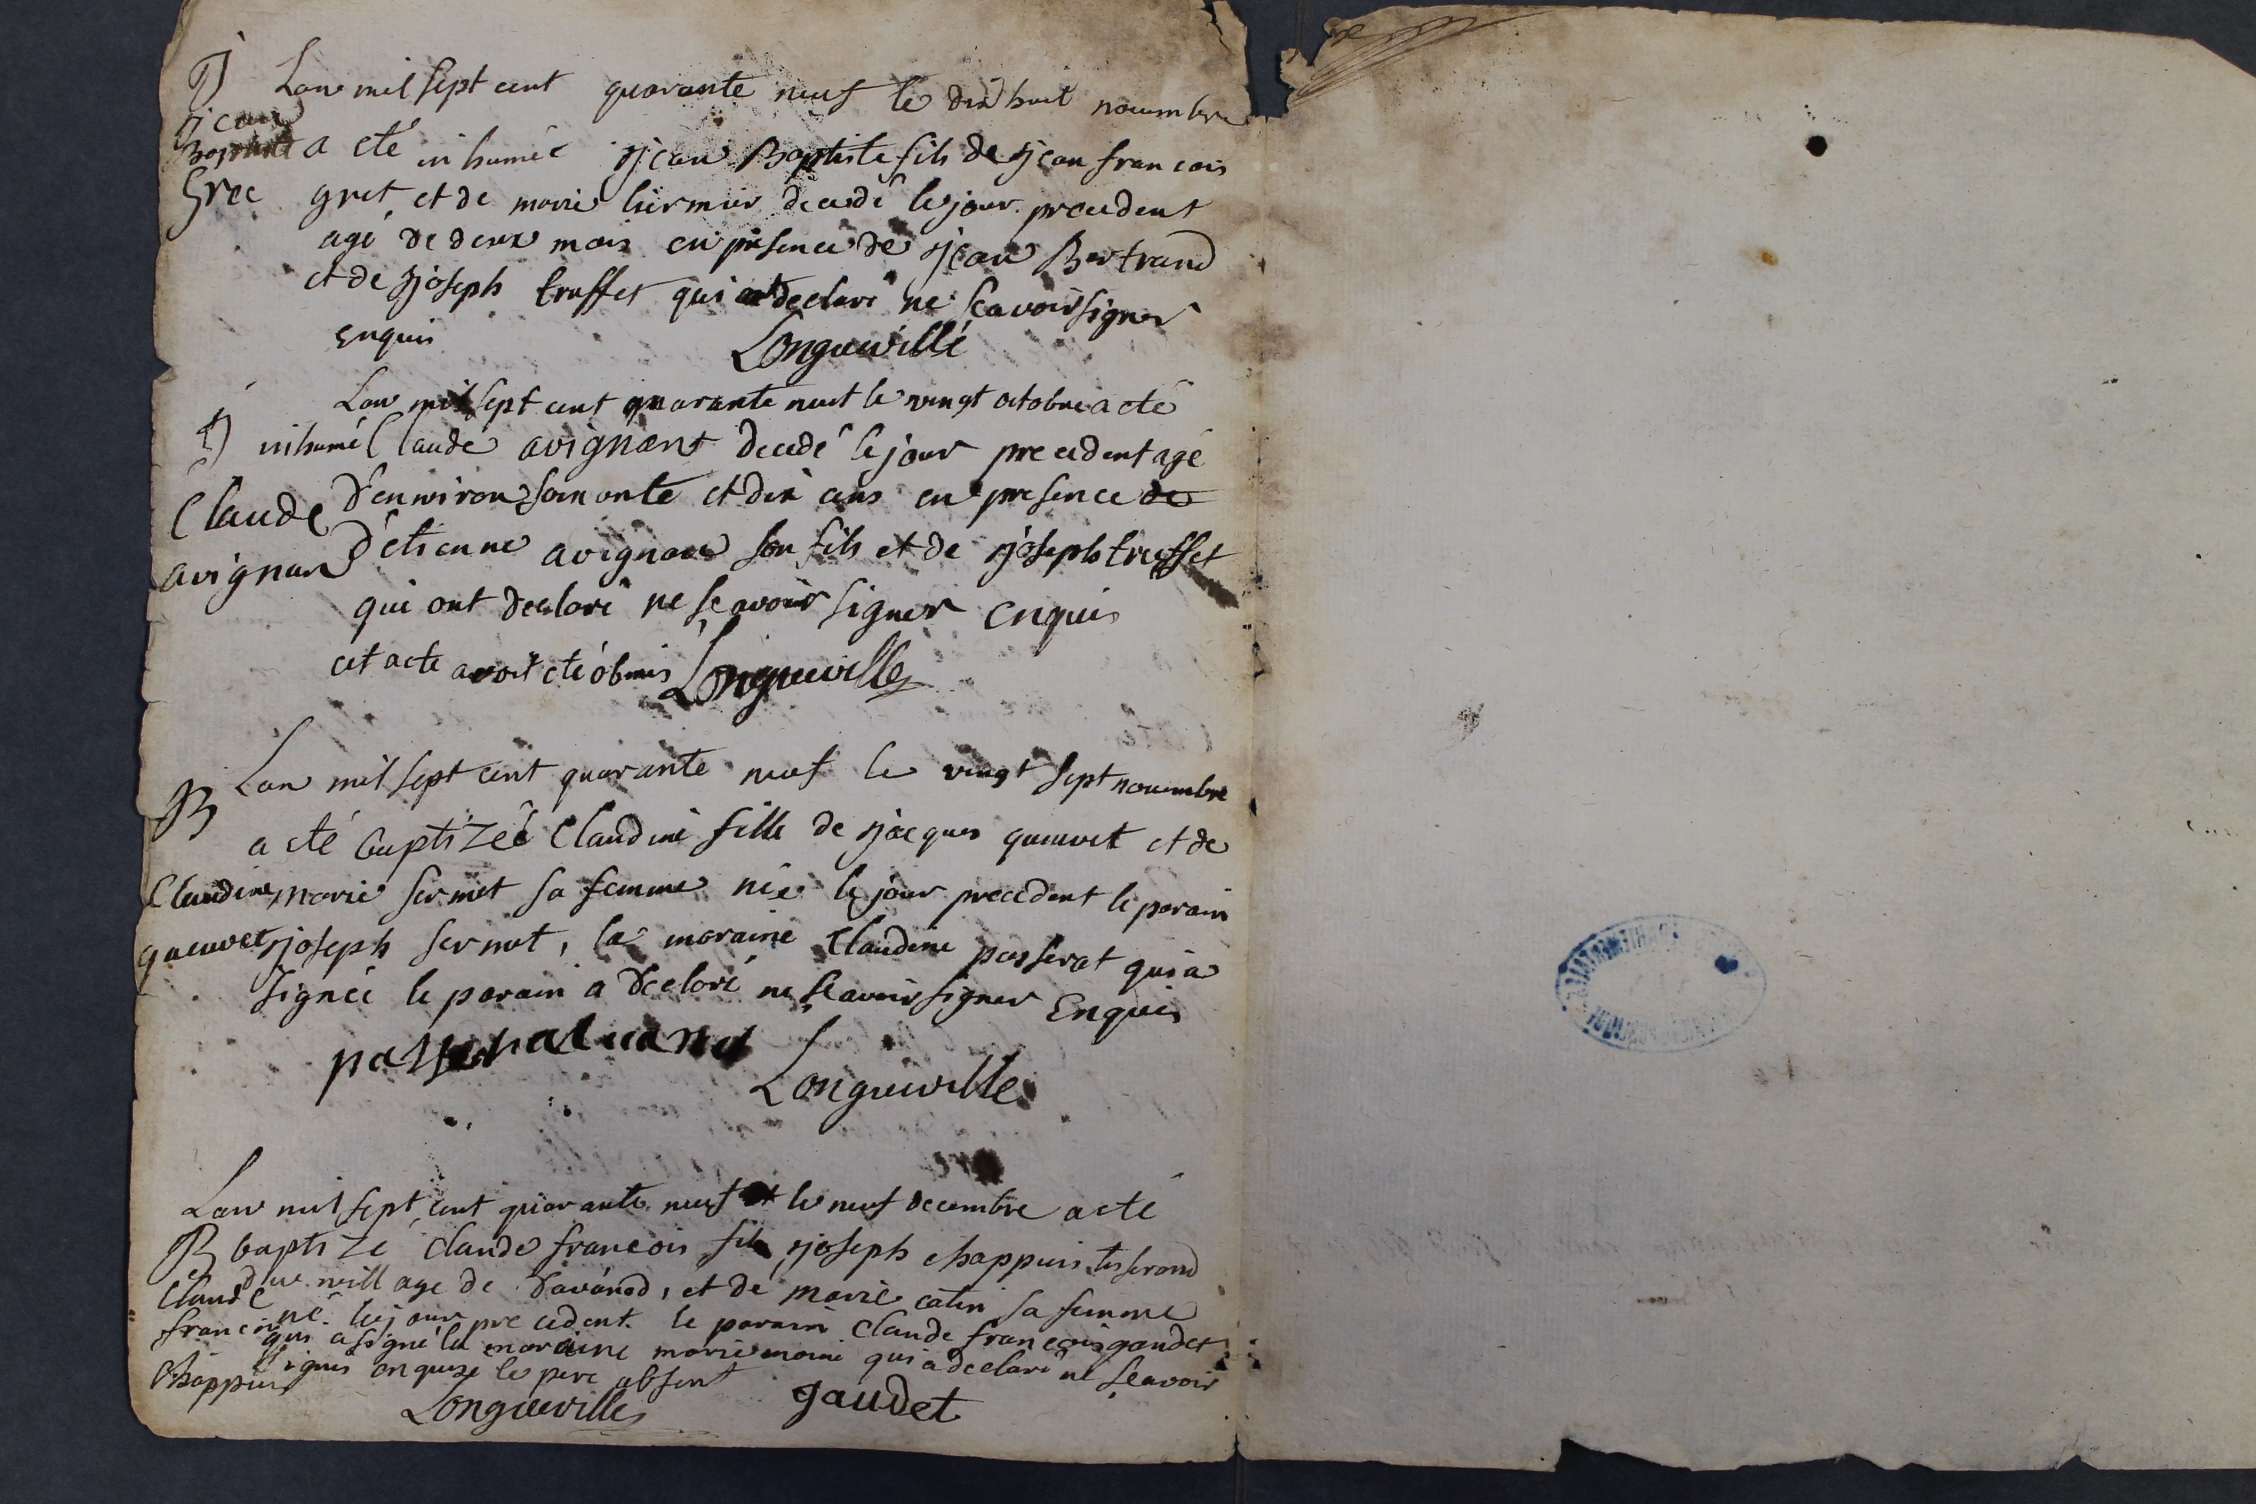 D Lan mil sept cent quarante neuf le dix huit nouembre
jean
Baptiste a eté inhumée jean Baptiste fils de jean francois
Grec gret et de marie decedé le jour precedent
agé de deux mois en présence de jean Bertrand
et de joseph truffet qui ont declaré ne scavoir signer
enquis
Longueville
Lan mil sept cent quarante neuf le vingt octobre a eté
D inhumé Claude avignant decedé le jour precedent agé
Claude d'environ soixante et dix ans en presence de
avignan d'étienne avignan son fils et de joseph truffet
qui ont declaré ne scavoir signer enquis
cet acte avoit eté obmis Longueville
Lan mil sept cent quarante neuf le vingt sept nouembre
B
a eté baptizée Claudine fille de jacques queuvet et de
Claudine marie sermet sa femme née le jour precedent le parain
queuvet joseph sermet, la maraine Claudine passerat qui a
signée le parain a declaré ne scavoir signer Enquis
Longueville
Lan mil sept cent quarante neuf le neuf decembre a eté
B baptizé claude francois fils joseph chappuis tisserand
claude du village de davanod, et de marie catin sa femme
francois né le jour precedent. le parain claude francois gaudet
qui a signé la maraine marie qui a declaré ne scavoir
chappuis signer enquize le pere absent
Longueville gaudet